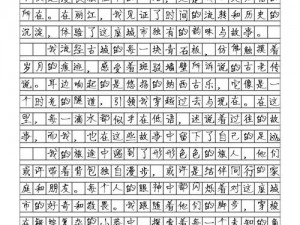 所在。在丽江，我见证了时间的流转和历史的
沉淀，体验了这座城市独有的韵味与故事。
我流经古城的每一块青石板，仿佛触摸着
岁月的痕迹，感受着斑驳墙壁所讲的古老传
说。耳边响起的是悠扬的纳西古乐，它像是一
个时光的隧道，引领我穿越过去与现在。在这
里，每一滴水都似乎在低语，述说着过往的故
事，而我，也在这些故事中留下了自己的足迹
我的旅途中遇到了形形色色的旅人，他们
或许是背着包独自漫步，或许是结伴同行的家
庭和朋友。每个人的眼神中都闪烁着对这座城
市的好奇和敬畏。我跟随他们的脚步，穿梭